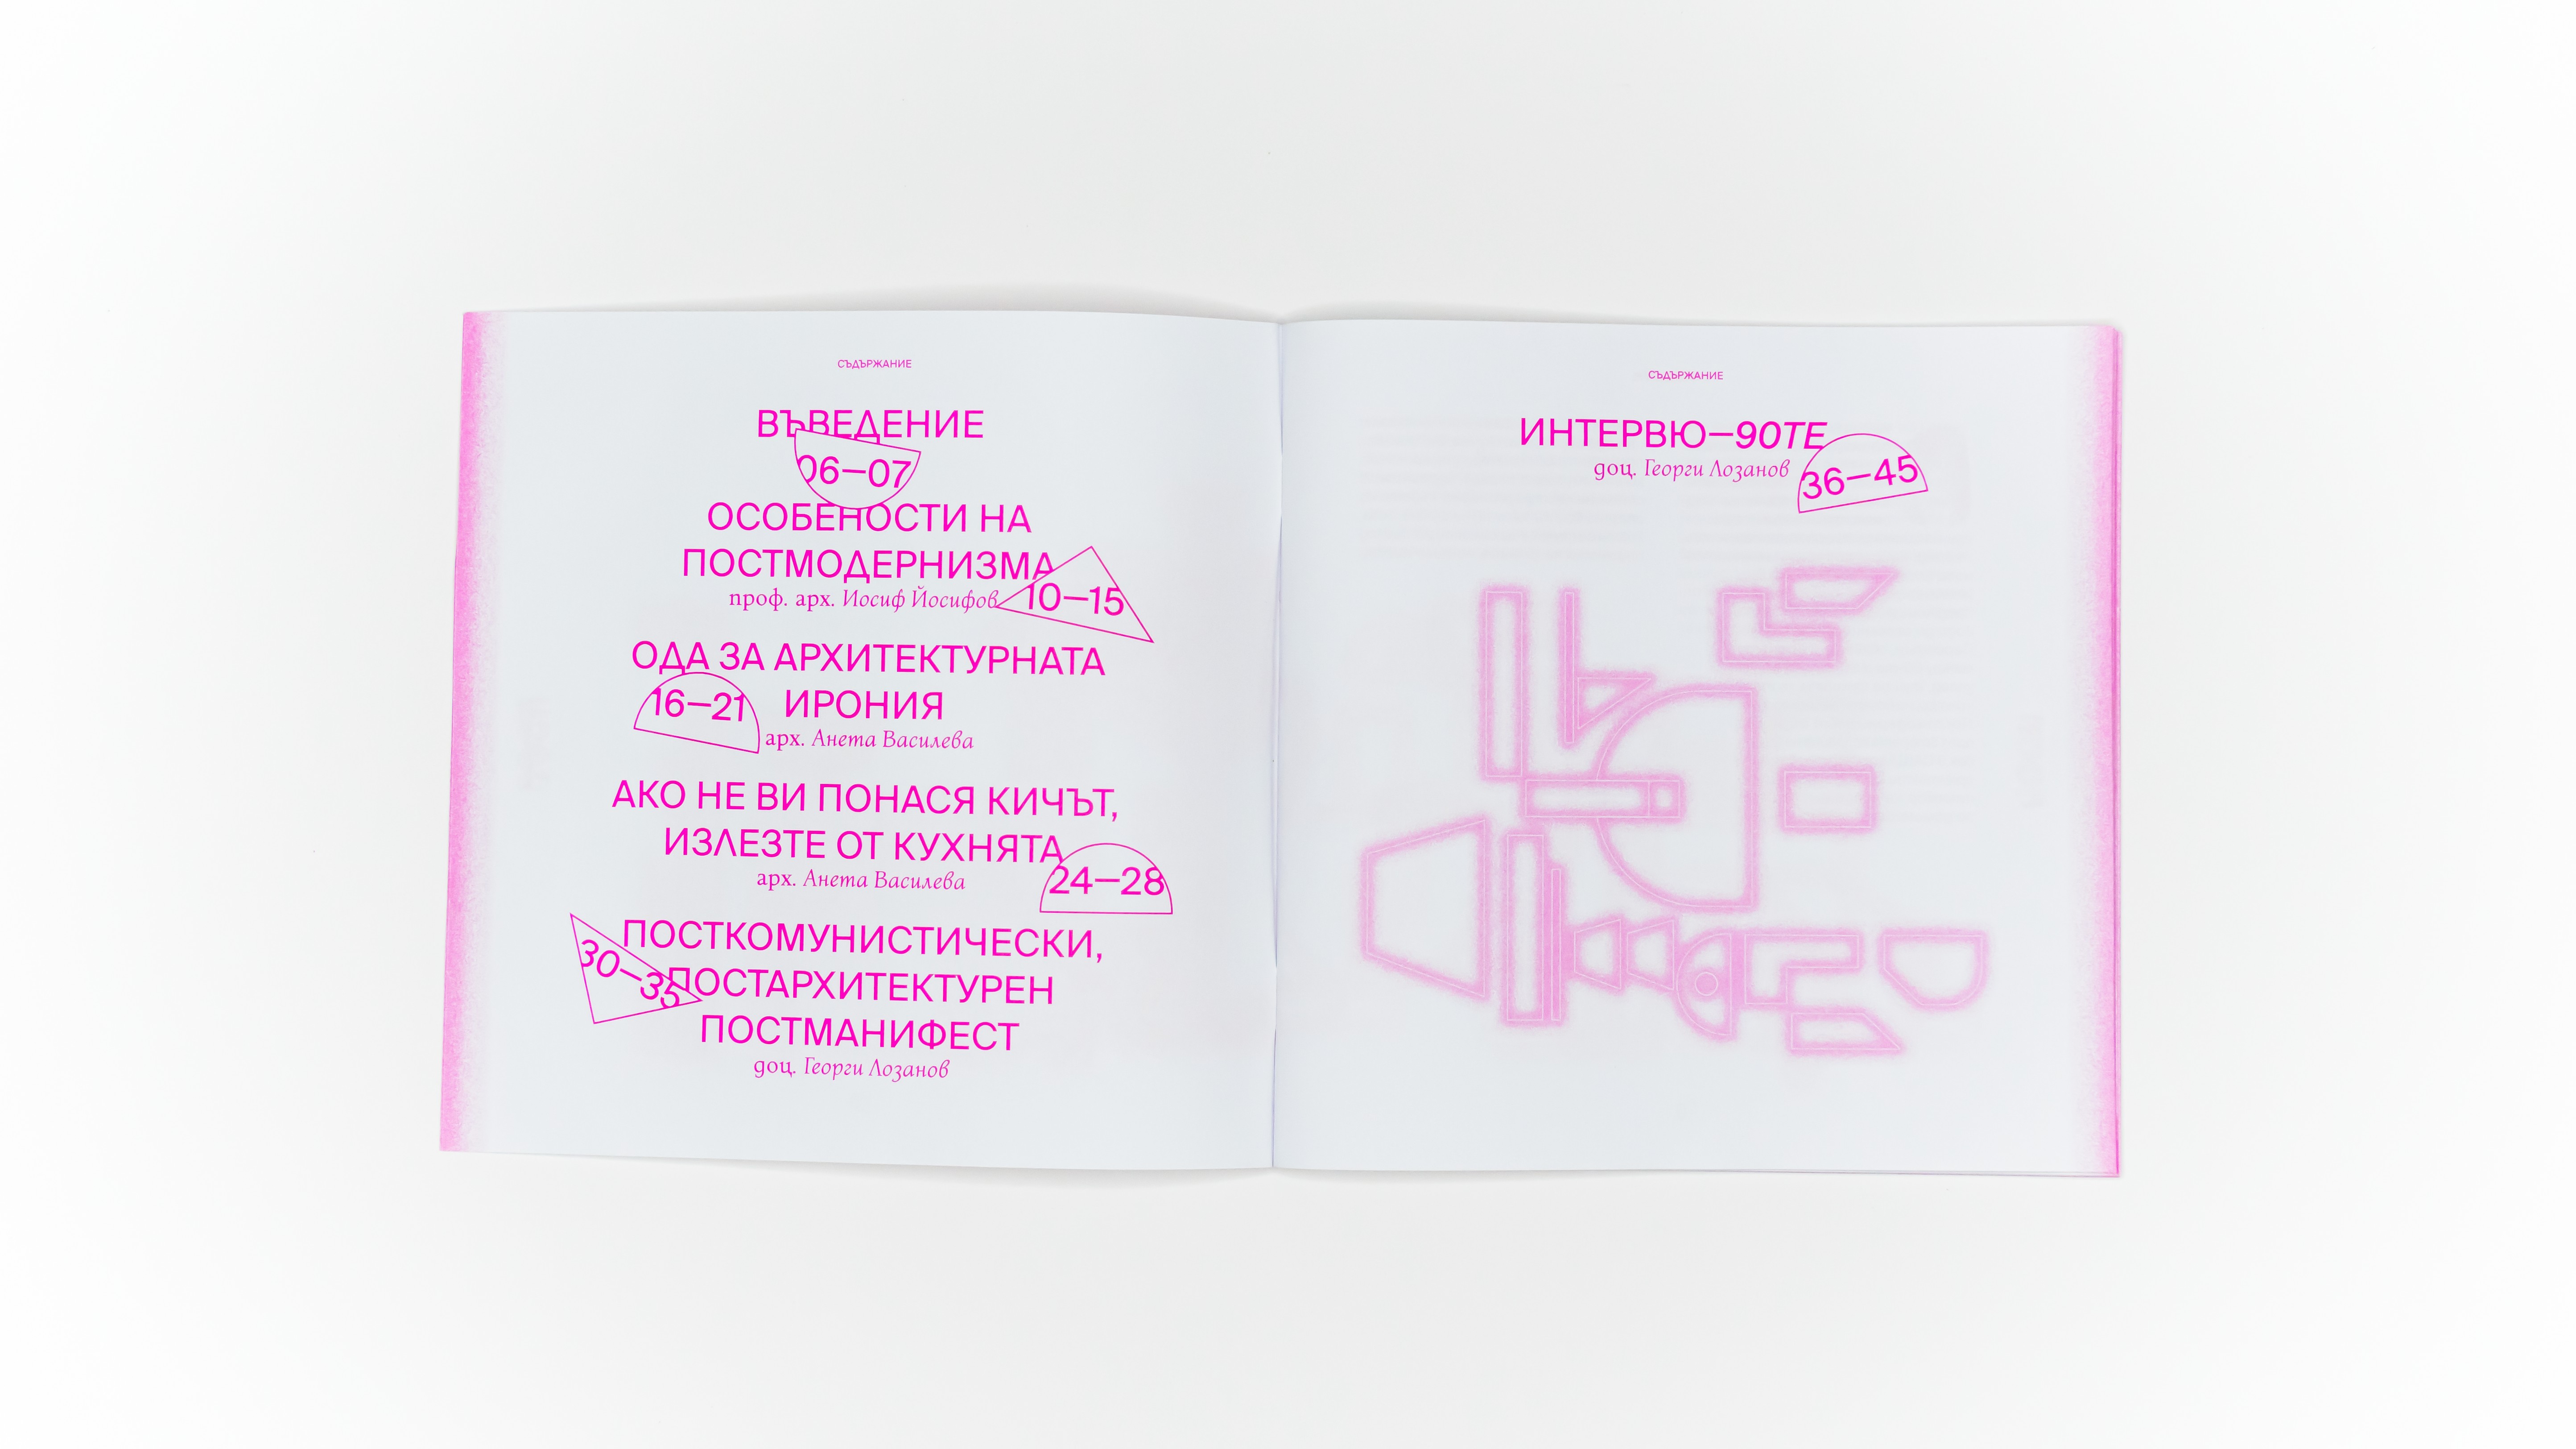 СЪДЪРЖАНИЕ
ВЪВЕДЕНИЕ
06—07
ОСОБЕНОСТИ НА
ПОСТМОДЕРНИЗМА
проф. арх. Иосиф Йосифов
10—15
ОДА ЗА АРХИТЕКТУРНАТА
ИРОНИЯ
16—21
арх. Анета Василева
АКО НЕ ВИ ПОНАСЯ КИЧЪТ,
ИЗЛЕЗТЕ ОТ КУХНЯТА
арх. Анета Василева
24—28
ПОСТКОМУНИСТИЧЕСКИ,
ПОСТАРХИТЕКТУРЕН
ПОСТМАНИФЕСТ
30—35
доц. Георги Лозанов
СЪДЪРЖАНИЕ
ИНТЕРВЮ—90ТЕ
доц. Георги Лозанов
36—45